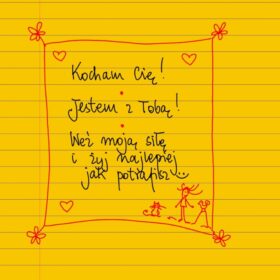 Kocham Cię!
Jestem z Tobą!
Weź moją siłę
i żyj najlepiej
jak potrafisz